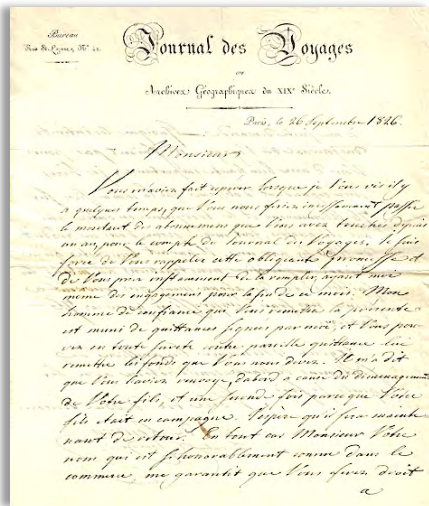 Bureau
Journal des Voyages
ou
Archives Géographiques du XIXe Siècle.
Paris, le 26 Septembre 1826.
Monsieur
Vous m'aviez fait esperer lorsque je Vous vis il y
a quelques temps, que Vous nous feriez incessamment passer
le montant de abonnemens que Vous avez touchés depuis
un an, pour le compte du Journal des Voyages. Je suis
forcé de Vous rappeler cette obligeante promesse et
de Vous prier instamment de la remplir, ayant moi
meme des engagemens pour la fin de ce mois. Mon
homme de confiance qui Vous remettra la presente
est muni de quittances signées par moi, et Vous pou
vez en toute sureté contre pareille quittance lui
remettre les fonds que Vous nous devez. Il m'a dit
que Vous l'aviez renvoyé d'abord à cause du demenagement
de Votre fils, et une seconde fois parceque Votre
fils etait en campagne. J'espère qu'il sera mainte
nant de retour. En tout cas Monsieur Votre
nom qui est si honorablement connu dans le
commerce me garantit que Vous ferez droit
a